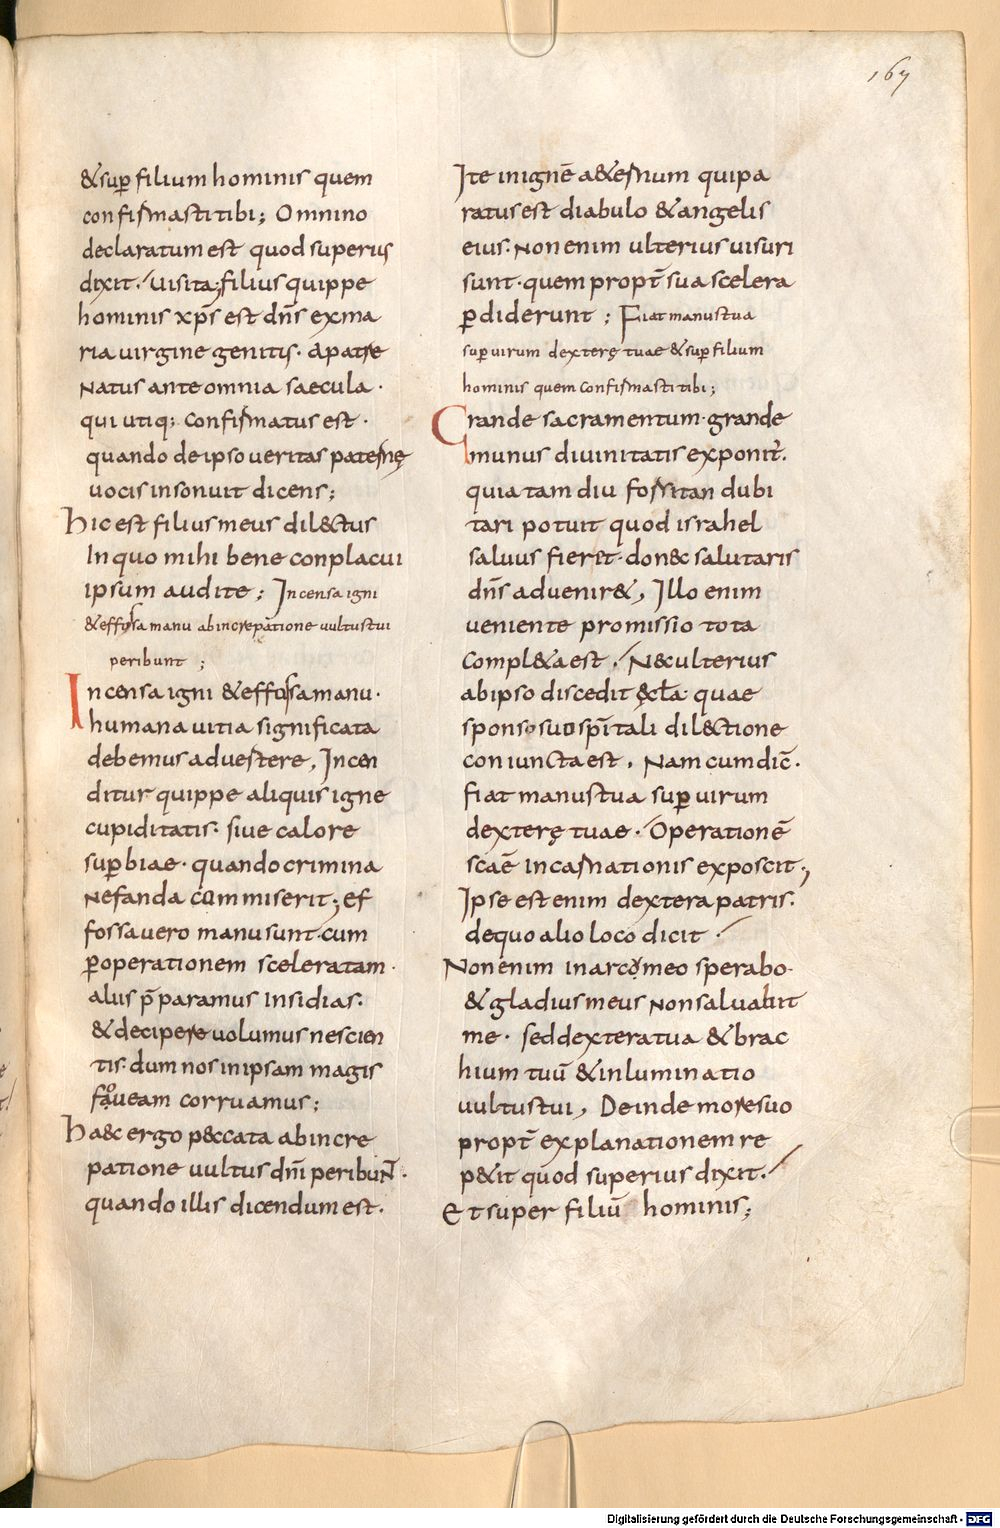 167
&sup̄ filium hominis quem
confirmasti tibi; Omnino
declaratum est quod superius
dixit. Visita; filius quippe
hominis xp̄s est dn̄s ex ma
ria uirgine genitus. A patre
Natus ante omnia saecula.
qui utiq; confirmatus est.
quando de ipso ueritas paternę
uocis insonuit dicens;
Hic est filius meus dil&tus
In quo mihi bene conplacui
ipsum audite; Incensa igni
& effossa manu ab increpatione uultus tui
peribunt;
Incensa igni & effossa manu.
humana uitia significata
debemus aduertere, Incen
ditur quippe aliquis igne
cupiditatis. siue calore
sup̄biae. quando crimina
Nefanda commiserit; ef
fossa uero manu sunt. cum
p̄ operationem sceleratam.
alus p̄paramus Insidias.
& decipere uolumus nescien
tis. dum nos in ipsam magis
foueam corruamus;
Haec ergo p&cata ab incre
patione uultus dn̄i peribunt.
quando illis dicendum est.
Ite in ignē a&ernum qui pa
ratus est diabulo & angelis
eius. Non enim ulterius uisuri
sunt. quem propt̄ sua scelera
p̄diderunt; Fiat manus tua
sup̄ uirum dexterę tuae & sup̄ filium
hominis quem confirmasti tibi;
Grande sacramentum. grande
munus diuinitatis exponit̄.
quia tam diu forsitan dubi
tari potuit quod israhel
saluus fier&. don& salutaris
dn̄s aduenir&, Illo enim
ueniente promissio tota
compl&a est. N& ulterius
ab ipso discedit ęcl̄a quae
sponso suo sp̄itali dil&tione
coniuncta est, Nam cum dic̄.
fiat manus tua sup̄ uirum
dexterę tuae. Operationē
scāe incarnationis exposcit;
Ipse est enim dextera patris.
de quo alio loco dicit.
Non enim in arco meo sperabo.
& gladius meus non saluabit
me. sed dextera tua & brac
hium tuū & inluminatio
uultus tui, Deinde more suo
propt̄ explanationem re
p&it quod superius dixit.
Et super filiū hominis;
Digitalisierung gefördert durch die Deutsche Forschungsgemeinschaft - DFG